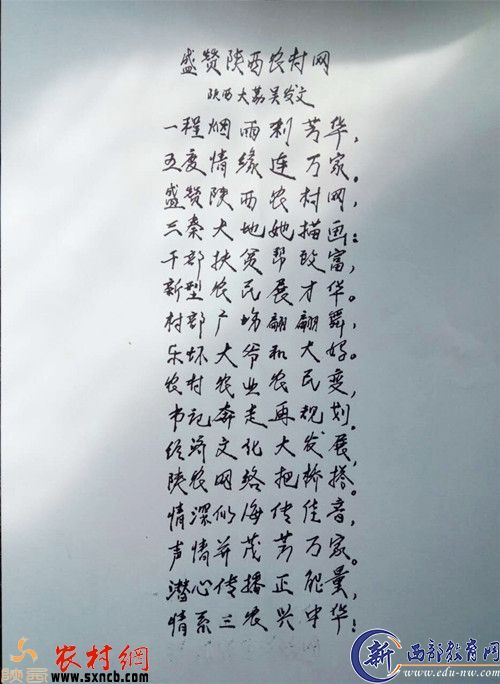 盛赞陕西农村网
陕西大荔吴发文
一程烟雨刺芳华，
五度情缘连万家。
盛赞陕西农村网，
三秦大地她描画：
干部扶贫帮致富，
新型农民展才华。
村部广场翩翩舞，
乐坏大爷和大妈。
农村农业农民变，
书记奔走再规划。
经济文化大发展，
陕农网络把桥搭。
情深似海传佳音，
声情并茂芳万家。
潜心传播正能量，
情系三农兴中华！
陕西农村網
www.sxncb.com
新西部教育网
www.edu-nw.com